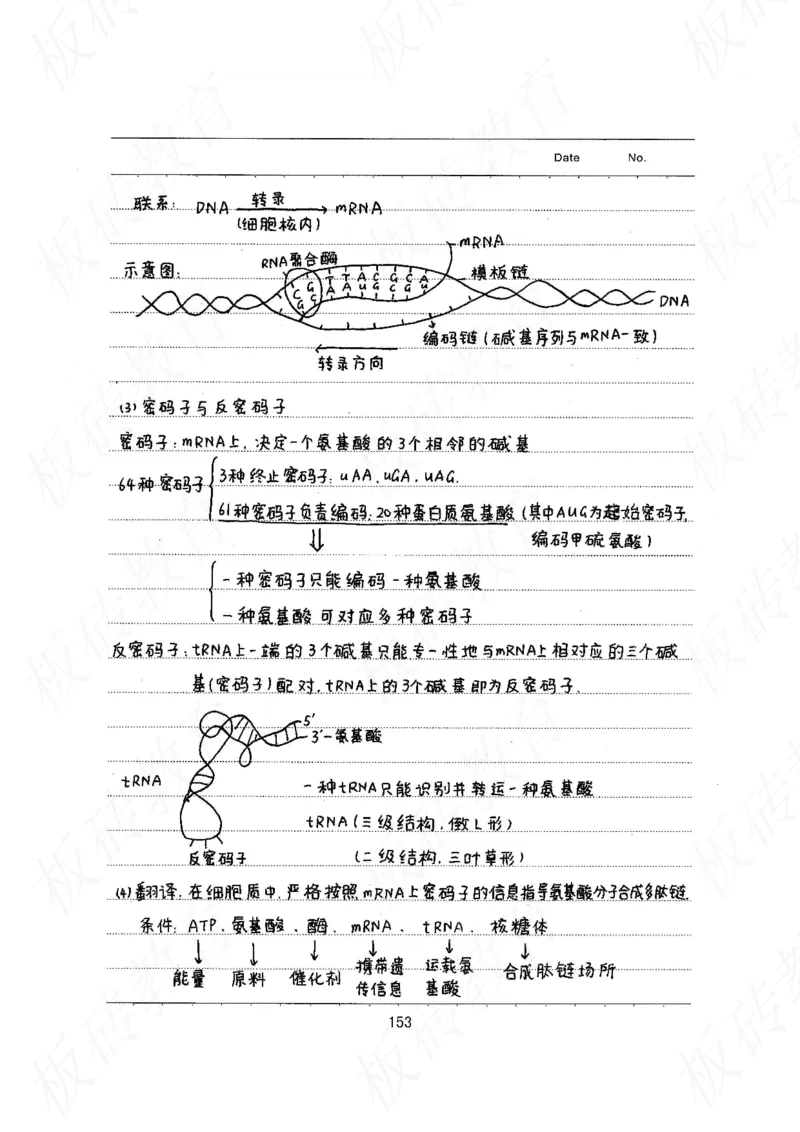 Date No.
联系: DNA 转录 mRNA
(细胞核内)
mRNA
示意图: RNA聚合酶 模板链
G T T A C G C A
C G A A U G C G U
G C
DNA
编码链(碱基序列与mRNA一致)
转录方向
(3)密码子与反密码子
密码子:mRNA上,决定一个氨基酸的3个相邻的碱基
64种密码子
3种终止密码子:UAA、UGA、UAG.
61种密码子负责编码:20种蛋白质氨基酸(其中AUG为起始密码子,
编码甲硫氨酸)
一种密码子只能编码一种氨基酸
一种氨基酸可对应多种密码子
反密码子:tRNA上一端的3个碱基只能专一性地与mRNA上相对应的三个碱
基(密码子)配对,tRNA上的3个碱基即为反密码子.
5'
3'-氨基酸
tRNA
一种tRNA只能识别并转运一种氨基酸
tRNA(三级结构,倒L形)
反密码子 (二级结构,三叶草形)
(4)翻译:在细胞质中,严格按照mRNA上密码子的信息指导氨基酸分子合成多肽链
条件:ATP、氨基酸、酶、mRNA、tRNA、核糖体
能量 原料 催化剂 携带遗传信息 运载氨基酸 合成肽链场所
153
板砖教育